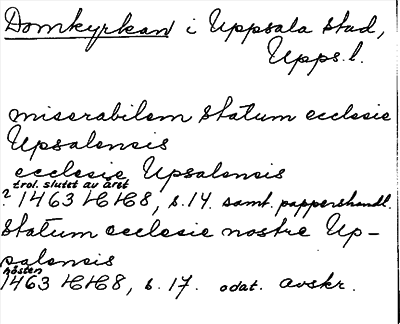 Domkyrkan i Uppsala stad,
Upps.l.
miserabilem statum ecclesie
Upsalensis
ecclesie Upsalensis
trol. slutet av året
? 1463 HH8, s.14. samt. pappershandl.
statum ecclesie nostre Up-
salensis
hösten
1463 HH8, s.17. odat. avskr.